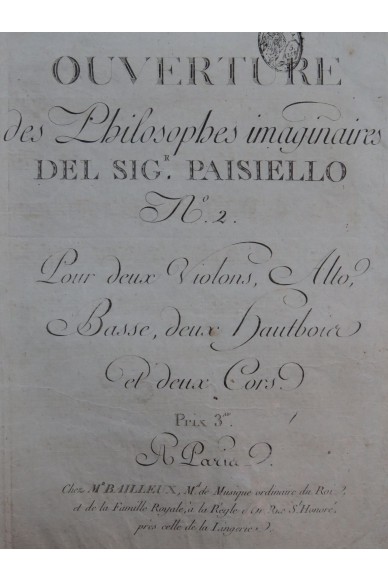 OUVERTURE
des Philosophes imaginaires
DEL SIG.R PAISIELLO
N.º 2.
Pour deux Violons, Alto,
Basse, deux Hautbois
et deux Cors.
Prix 3.
A Paris.
Chez Mr BAILLEUX, Md de Musique ordinaire du Roi,
et de la Famille Royale, à la Regle d'Or Rue St Honoré,
près celle de la Lingerie.